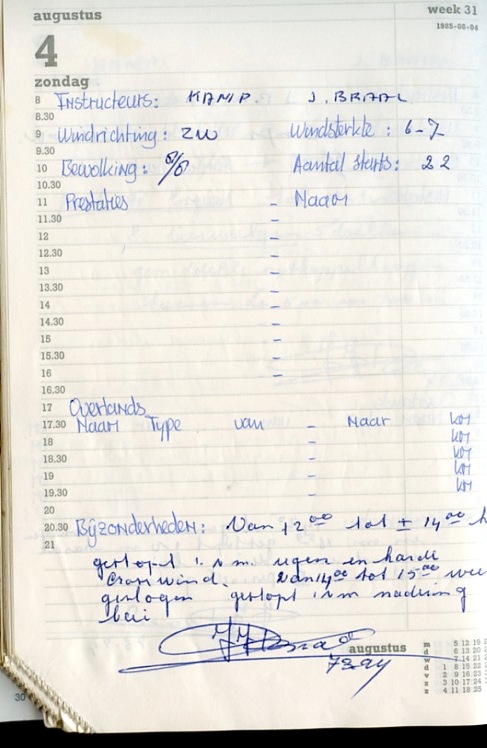 augustus week 31
1985-08-04
4
zondag
8 Instructeurs: KAMP. J. BRAAL
8.30
9 Windrichting: ZW Windsterkte: 6-7
9.30
10 Bewolking: 8/8 Aantal starts: 22
10.30
11 Prestaties - Naam
11.30 -
12 -
12.30 -
13 -
13.30 -
14 -
14.30 -
15 -
15.30 -
16 -
16.30
17 Overlands
17.30 Naam Type van - Naar km
18 - km
18.30 - km
19 - km
19.30 - km
20
20.30 Bijzonderheden: Van 12.00 tot ± 14.00 h
21
gestopt i.v.m. regen en harde
Crosswind. Van 14.00 tot 15.00 weer
gevlogen gestopt i.v.m. nadering
bui
augustus
m 5 12 19
d 6 13 20
w 7 14 21
d 1 8 15 22
v 2 9 16 23
z 3 10 17 24
z 4 11 18 25
30